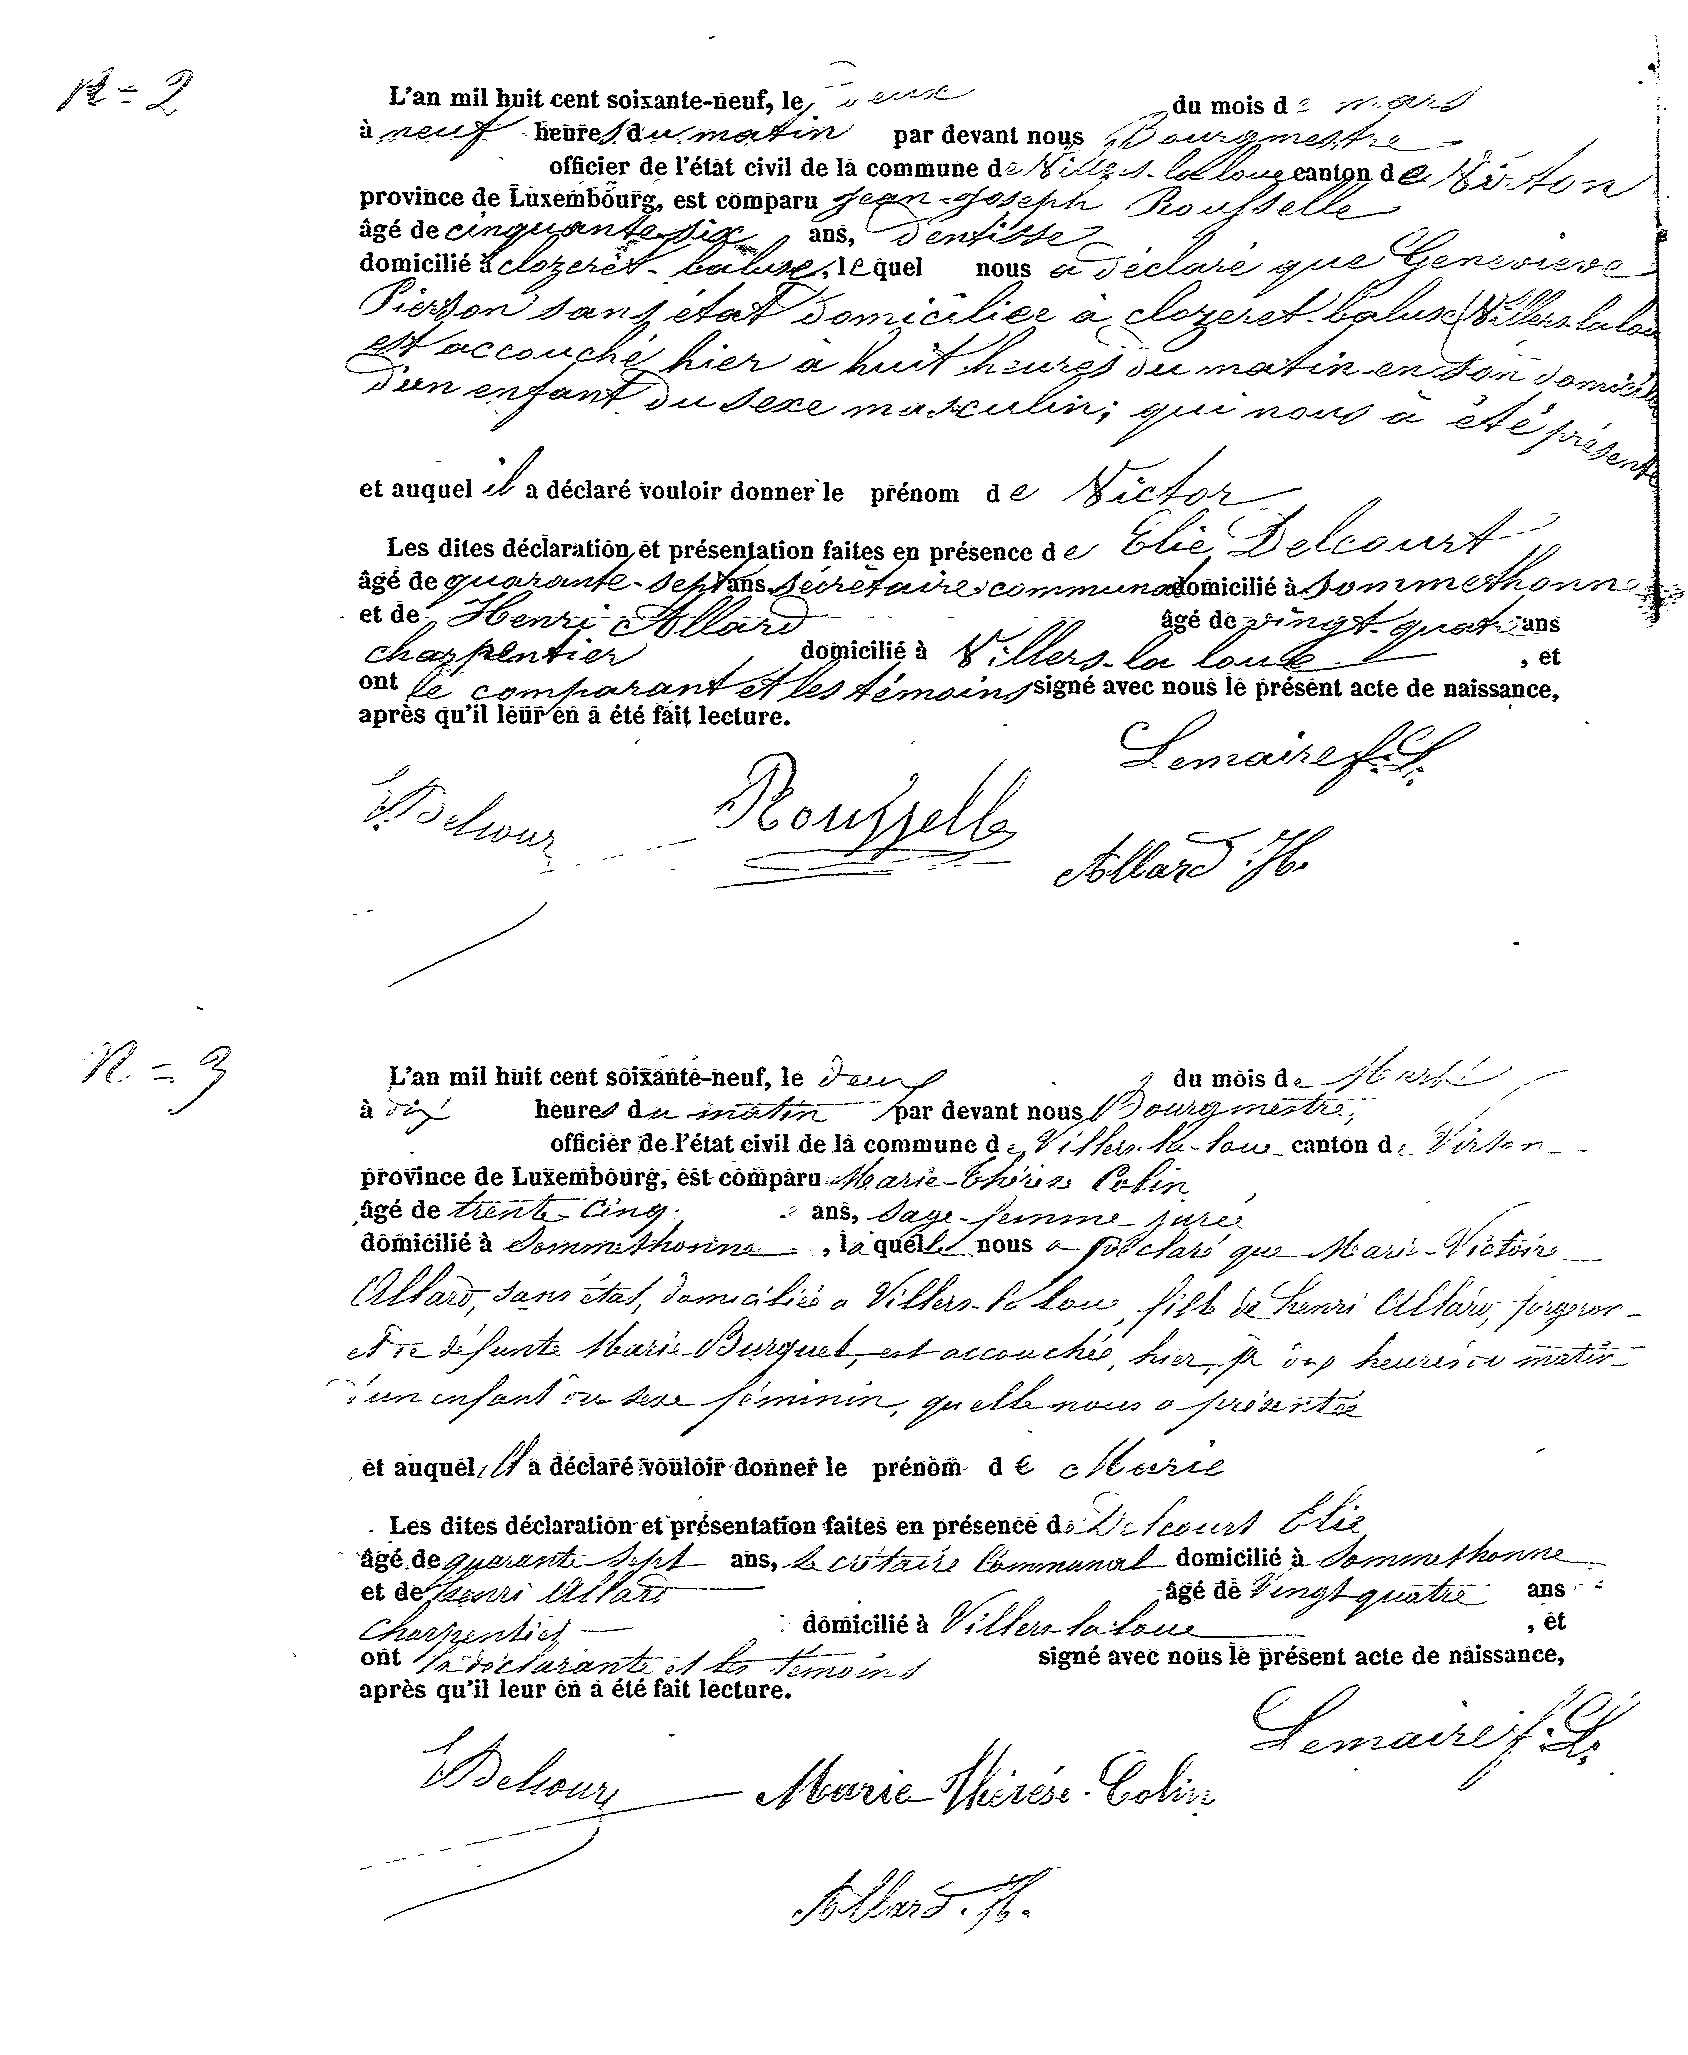 N = 2
L'an mil huit cent soixante-neuf, le deux du mois de mars
à neuf heures du matin par devant nous Bourgmestre
officier de l'état civil de la commune de Villers-la loue canton de Virton
province de Luxembourg, est comparu Jean-Joseph Rousselle
âgé de cinquante-six ans, dentiste
domicilié à clozeret-balux, lequel nous a déclaré que Geneviève
Pierson sans état domicilier à clozeret-balux (Villers-la loue
est accouché hier à huit heures du matin en son domicile
d'un enfant du sexe masculin; qui nous à été présenté
et auquel il a déclaré vouloir donner le prénom de Victor
Les dites déclaration et présentation faites en présence de Elie Delcourt
âgé de quarante-sept ans secrétaire communal domicilié à Sommethonne
et de Henri Allard âgé de vingt-quatre ans
charpentier domicilié à Villers-la loue , et
ont le comparant et les témoins signé avec nous le présent acte de naissance,
après qu'il leur en a été fait lecture.
Lemaire f. L.
E. Delcour
Rousselle
Allard H.
N = 3
L'an mil huit cent soixante-neuf, le deux du mois de Mars
à dix heures du matin par devant nous Bourgmestre,
officier de l'état civil de la commune de Villers-la-loue canton de Virton
province de Luxembourg, est comparu Marie-Thérèse Colin
âgé de trente-cinq ans, sage-femme jurée
domicilié à Sommethonne, laquelle nous a déclaré que Marie-Victoire
Allard, sans état, domiciliée a Villers-la loue, fille de henri Allard, forgeron
et de défunte Marie Burquel, est accouchée, hier, à heures du matin
d'un enfant du sexe féminin, quelle nous a présentée
et auquel a déclaré vouloir donner le prénom de Marie
Les dites déclaration et présentation faites en présence de Delcourt Elie
âgé de quarante sept ans, secrétaire Communal domicilié à Sommethonne
et de henri Allard âgé de Vingt quatre ans
Charpentier domicilié à Villers-la loue , et
ont la déclarante et les témoins signé avec nous le présent acte de naissance,
après qu'il leur en a été fait lecture.
Lemaire f. L.
E Delcour
Marie Thérèse Colin
Allard. H.